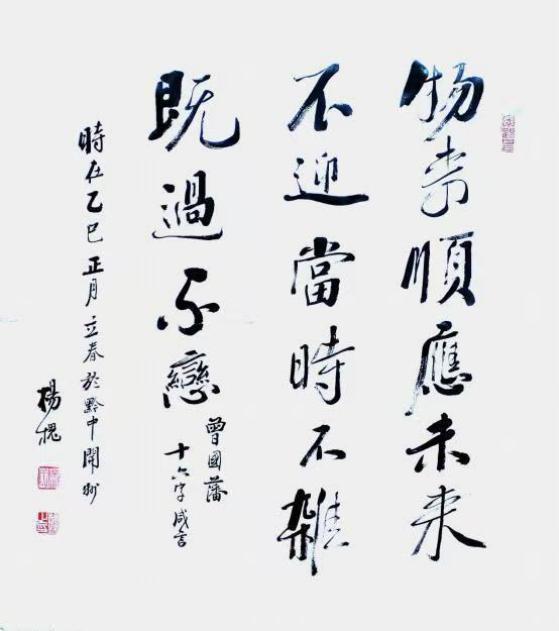 物来順應未来
不迎當時不雜
既過不戀
曾國藩
十六字咸言
時在乙巳正月立春於黔中開州
楊槐